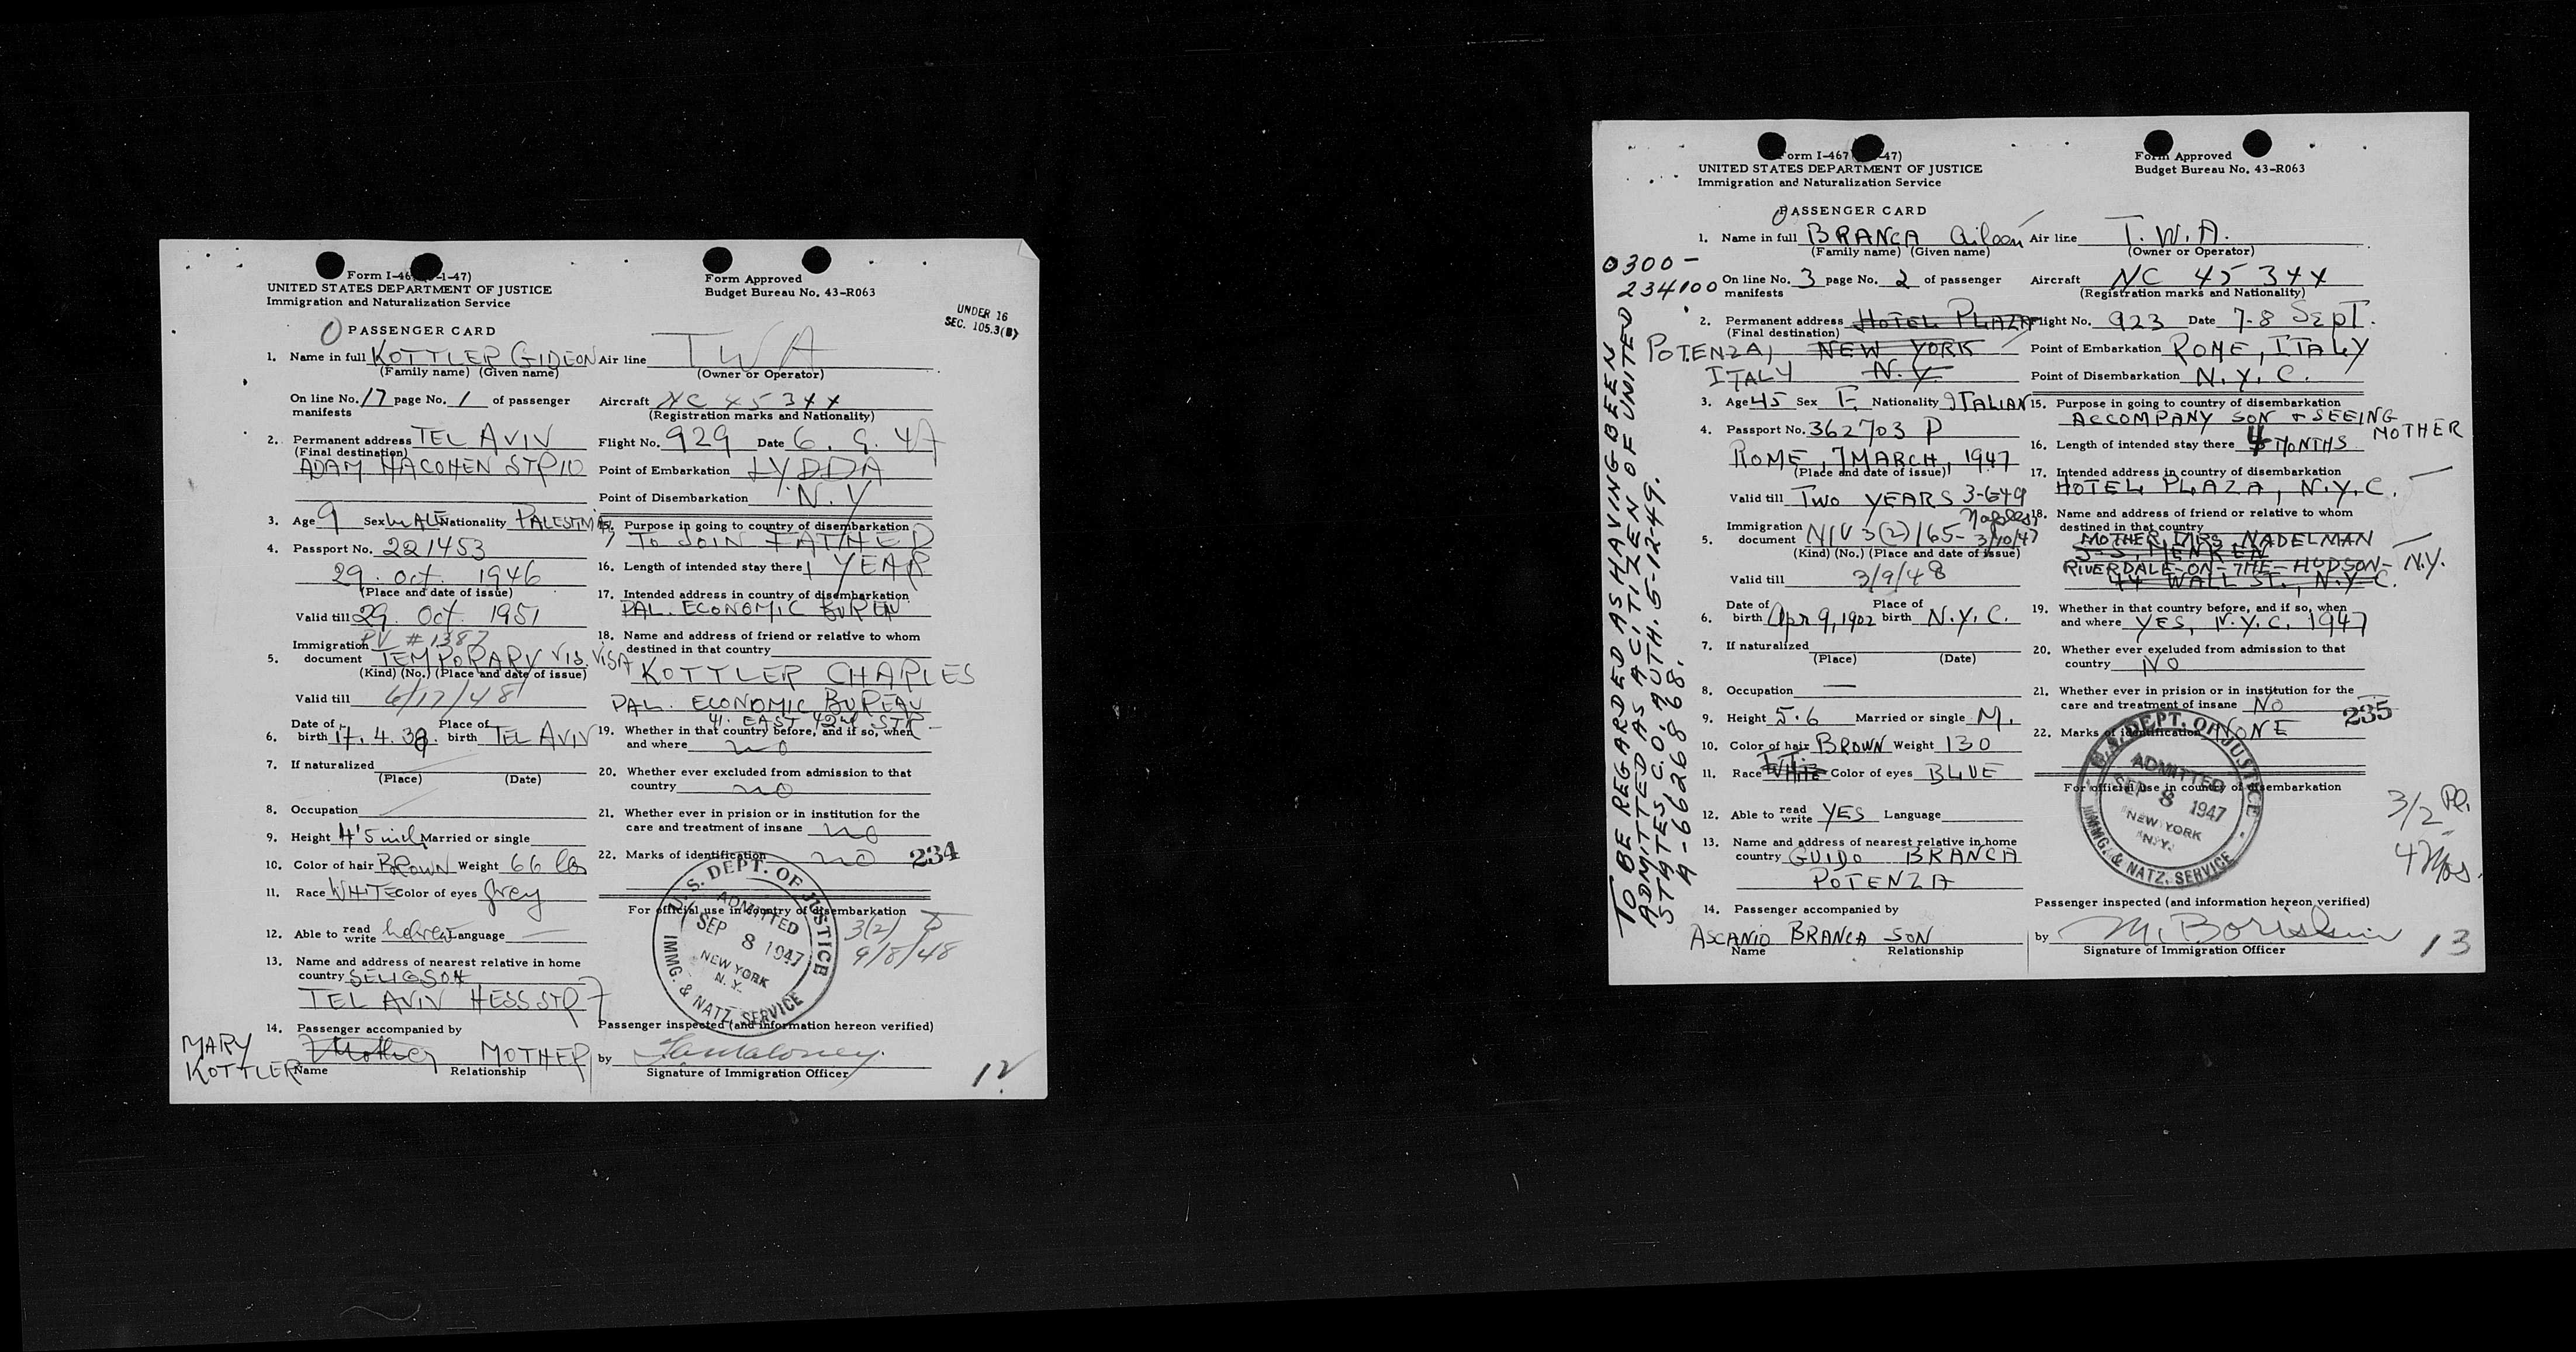 Form I-46 -1-47)
UNITED STATES DEPARTMENT OF JUSTICE
Immigration and Naturalization Service
Form Approved
Budget Bureau No. 43-R063
UNDER 16
SEC. 105.3(B)
PASSENGER CARD
1. Name in full KOTTLER GIDEON
(Family name) (Given name)
On line No. 17 page No. 1 of passenger
manifests
2. Permanent address TEL AVIV
(Final destination)
ADAM HACOHEN STR 10
3. Age 9 Sex MALE Nationality PALESTINIAN
4. Passport No. 221453
29. Oct. 1946
(Place and date of issue)
Valid till 29. Oct. 1951
PV # 1387
5. Immigration document TEMPORARY VIS. VISA
(Kind) (No.) (Place and date of issue)
Valid till 6/17/48
6. Date of birth 17. 4. 38. Place of birth TEL AVIV
7. If naturalized
(Place) (Date)
8. Occupation
9. Height 4'5 inch Married or single
10. Color of hair BROWN Weight 66 lbs
11. Race WHITE Color of eyes grey
12. Able to read write hebrew Language
13. Name and address of nearest relative in home
country SELIGSOH
TEL AVIV HESS STR 7
14. Passenger accompanied by
MARY
KOTTLER Mother MOTHER
Name Relationship
Air line TWA
(Owner or Operator)
Aircraft NC 45344
(Registration marks and Nationality)
Flight No. 929 Date 6. 9. 47
Point of Embarkation LYDDA
Point of Disembarkation N.Y
15. Purpose in going to country of disembarkation
TO JOIN FATHER
16. Length of intended stay there 1 YEAR
17. Intended address in country of disembarkation
PAL. ECONOMIC BUREAU
18. Name and address of friend or relative to whom
destined in that country
KOTTLER CHARLES
PAL. ECONOMIC BUREAU
41. EAST 42nd STR
19. Whether in that country before, and if so, when
and where no
20. Whether ever excluded from admission to that
country no
21. Whether ever in prision or in institution for the
care and treatment of insane no
22. Marks of identification no
234
For official use in country of disembarkation
U.S. DEPT. OF JUSTICE
ADMITTED
SEP 8 1947
NEW YORK
N.Y.
IMMG. & NATZ. SERVICE
3(2)
9/8/48
Passenger inspected (and information hereon verified)
by
Signature of Immigration Officer
12
Form I-467 -47)
UNITED STATES DEPARTMENT OF JUSTICE
Immigration and Naturalization Service
Form Approved
Budget Bureau No. 43-R063
PASSENGER CARD
0300-
234100
TO BE REGARDED AS HAVING BEEN
ADMITTED AS A CITIZEN OF UNITED
STATES, C.O. AUTH. 5-12-49.
A-6626868.
1. Name in full BRANCA Aileen
(Family name) (Given name)
On line No. 3 page No. 2 of passenger
manifests
2. Permanent address HOTEL PLAZA
(Final destination)
POTENZA, NEW YORK
ITALY N.Y.
3. Age 45 Sex F. Nationality ITALIAN
4. Passport No. 362703 P
ROME, 7 MARCH, 1947
(Place and date of issue)
Valid till TWO YEARS 3-6-49
Naples,
5. Immigration document NIV 3(2) 165- 3/10/47
(Kind) (No.) (Place and date of issue)
Valid till 3/9/48
6. Date of birth Apr 9, 1902 Place of birth N.Y.C.
7. If naturalized
(Place) (Date)
8. Occupation —
9. Height 5.6 Married or single M.
10. Color of hair BROWN Weight 130
11. Race WHITE Color of eyes BLUE
12. Able to read write YES Language
13. Name and address of nearest relative in home
country GUIDO BRANCA
POTENZA
14. Passenger accompanied by
ASCANIO BRANCA SON
Name Relationship
Air line T.W.A.
(Owner or Operator)
Aircraft NC 45344
(Registration marks and Nationality)
Flight No. 923 Date 7-8 Sept.
Point of Embarkation ROME, ITALY
Point of Disembarkation N.Y.C.
15. Purpose in going to country of disembarkation
ACCOMPANY SON & SEEING
MOTHER
16. Length of intended stay there 4 MONTHS
17. Intended address in country of disembarkation
HOTEL PLAZA, N.Y.C.
18. Name and address of friend or relative to whom
destined in that country
MOTHER, MRS NADELMAN
S.S. MENKEN
RIVERDALE-ON-THE-HUDSON-N.Y.
44 WALL ST., N.Y.C.
19. Whether in that country before, and if so, when
and where YES, N.Y.C. 1947
20. Whether ever excluded from admission to that
country NO
21. Whether ever in prision or in institution for the
care and treatment of insane NO
22. Marks of identification NONE
235
For official use in country of disembarkation
U.S. DEPT. OF JUSTICE
ADMITTED
SEP 8 1947
NEW YORK
N.Y.
IMMG. & NATZ. SERVICE
3/2
4 Mos.
Passenger inspected (and information hereon verified)
by
Signature of Immigration Officer
13